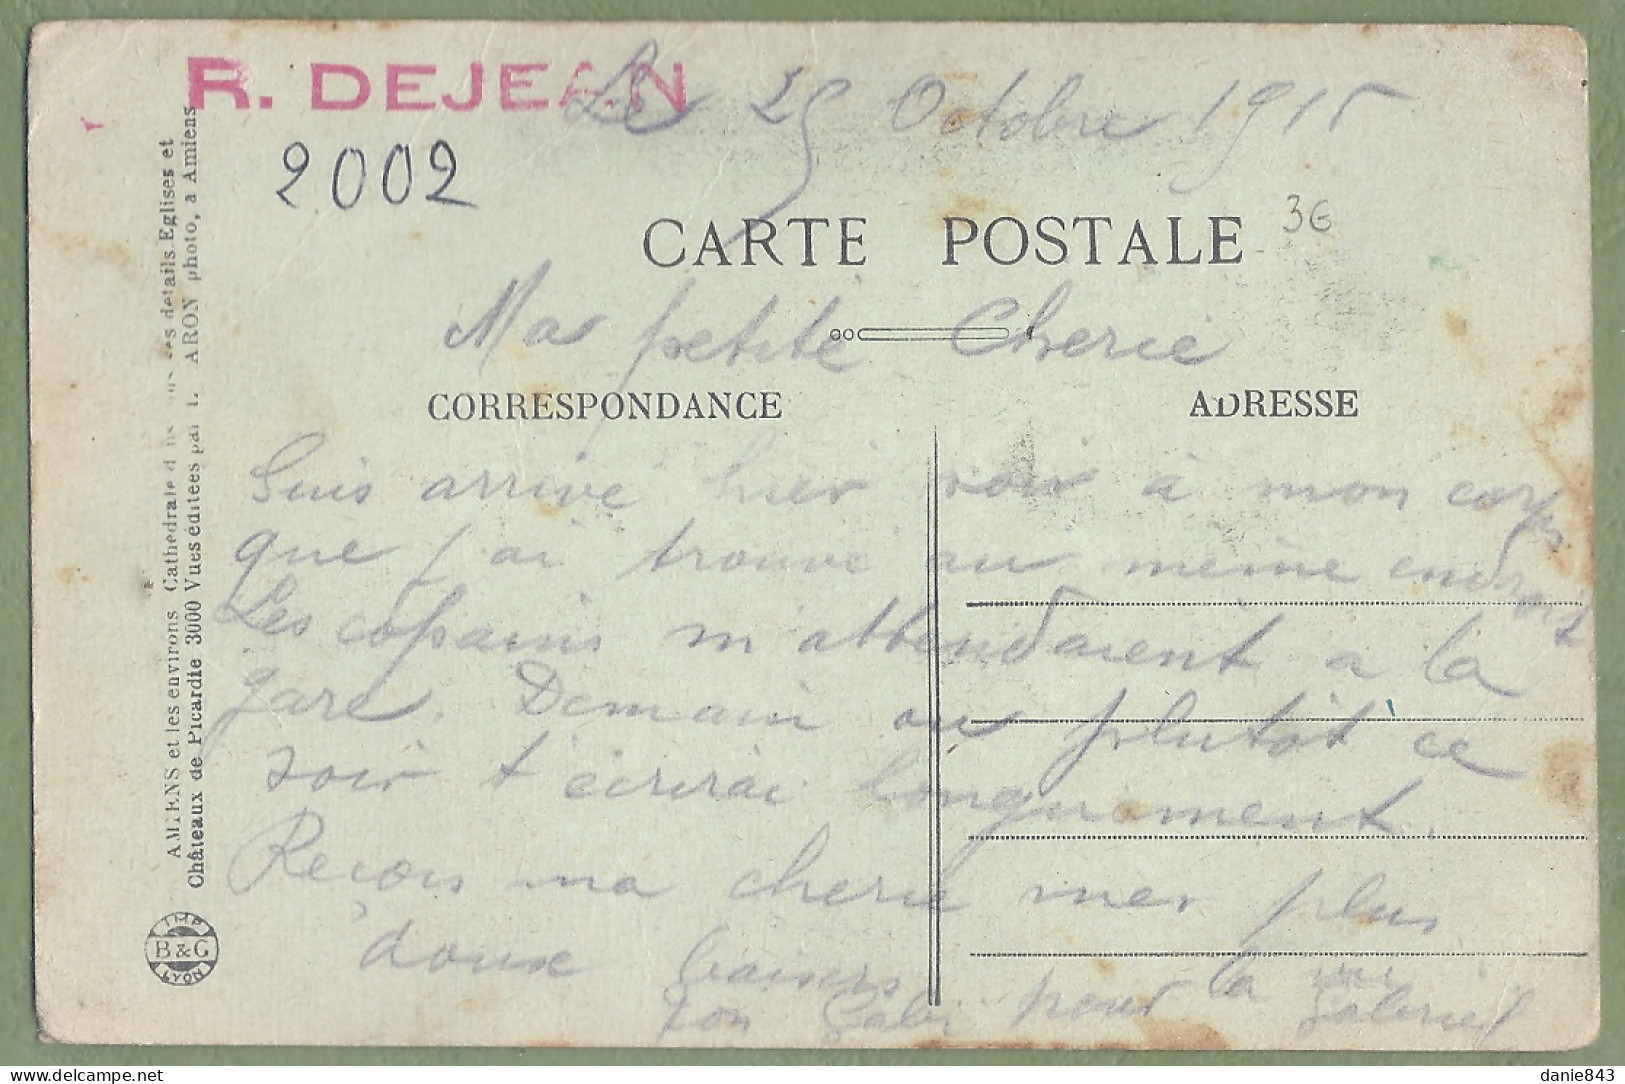 R. DEJEAN
Le 25 Octobre 1915
2002
3€
CARTE POSTALE
Ma petite Cherie
CORRESPONDANCE
ADRESSE
Suis arrivé hier soir à mon corps
que j'ai trouvé au même endroit
Les copains m'attendaient a la
gare. Demain ou plutôt ce
soir t'écrirai longuement.
Recois ma cherie mes plus
doux baisers
Ton Gabi pour la vie
Gabriel
AMIENS et les environs Cathédrale détails Eglises et
Châteaux de Picardie 3000 Vues éditées par L. CARON photo, a Amiens
IMP
B&G
LYON
danie843